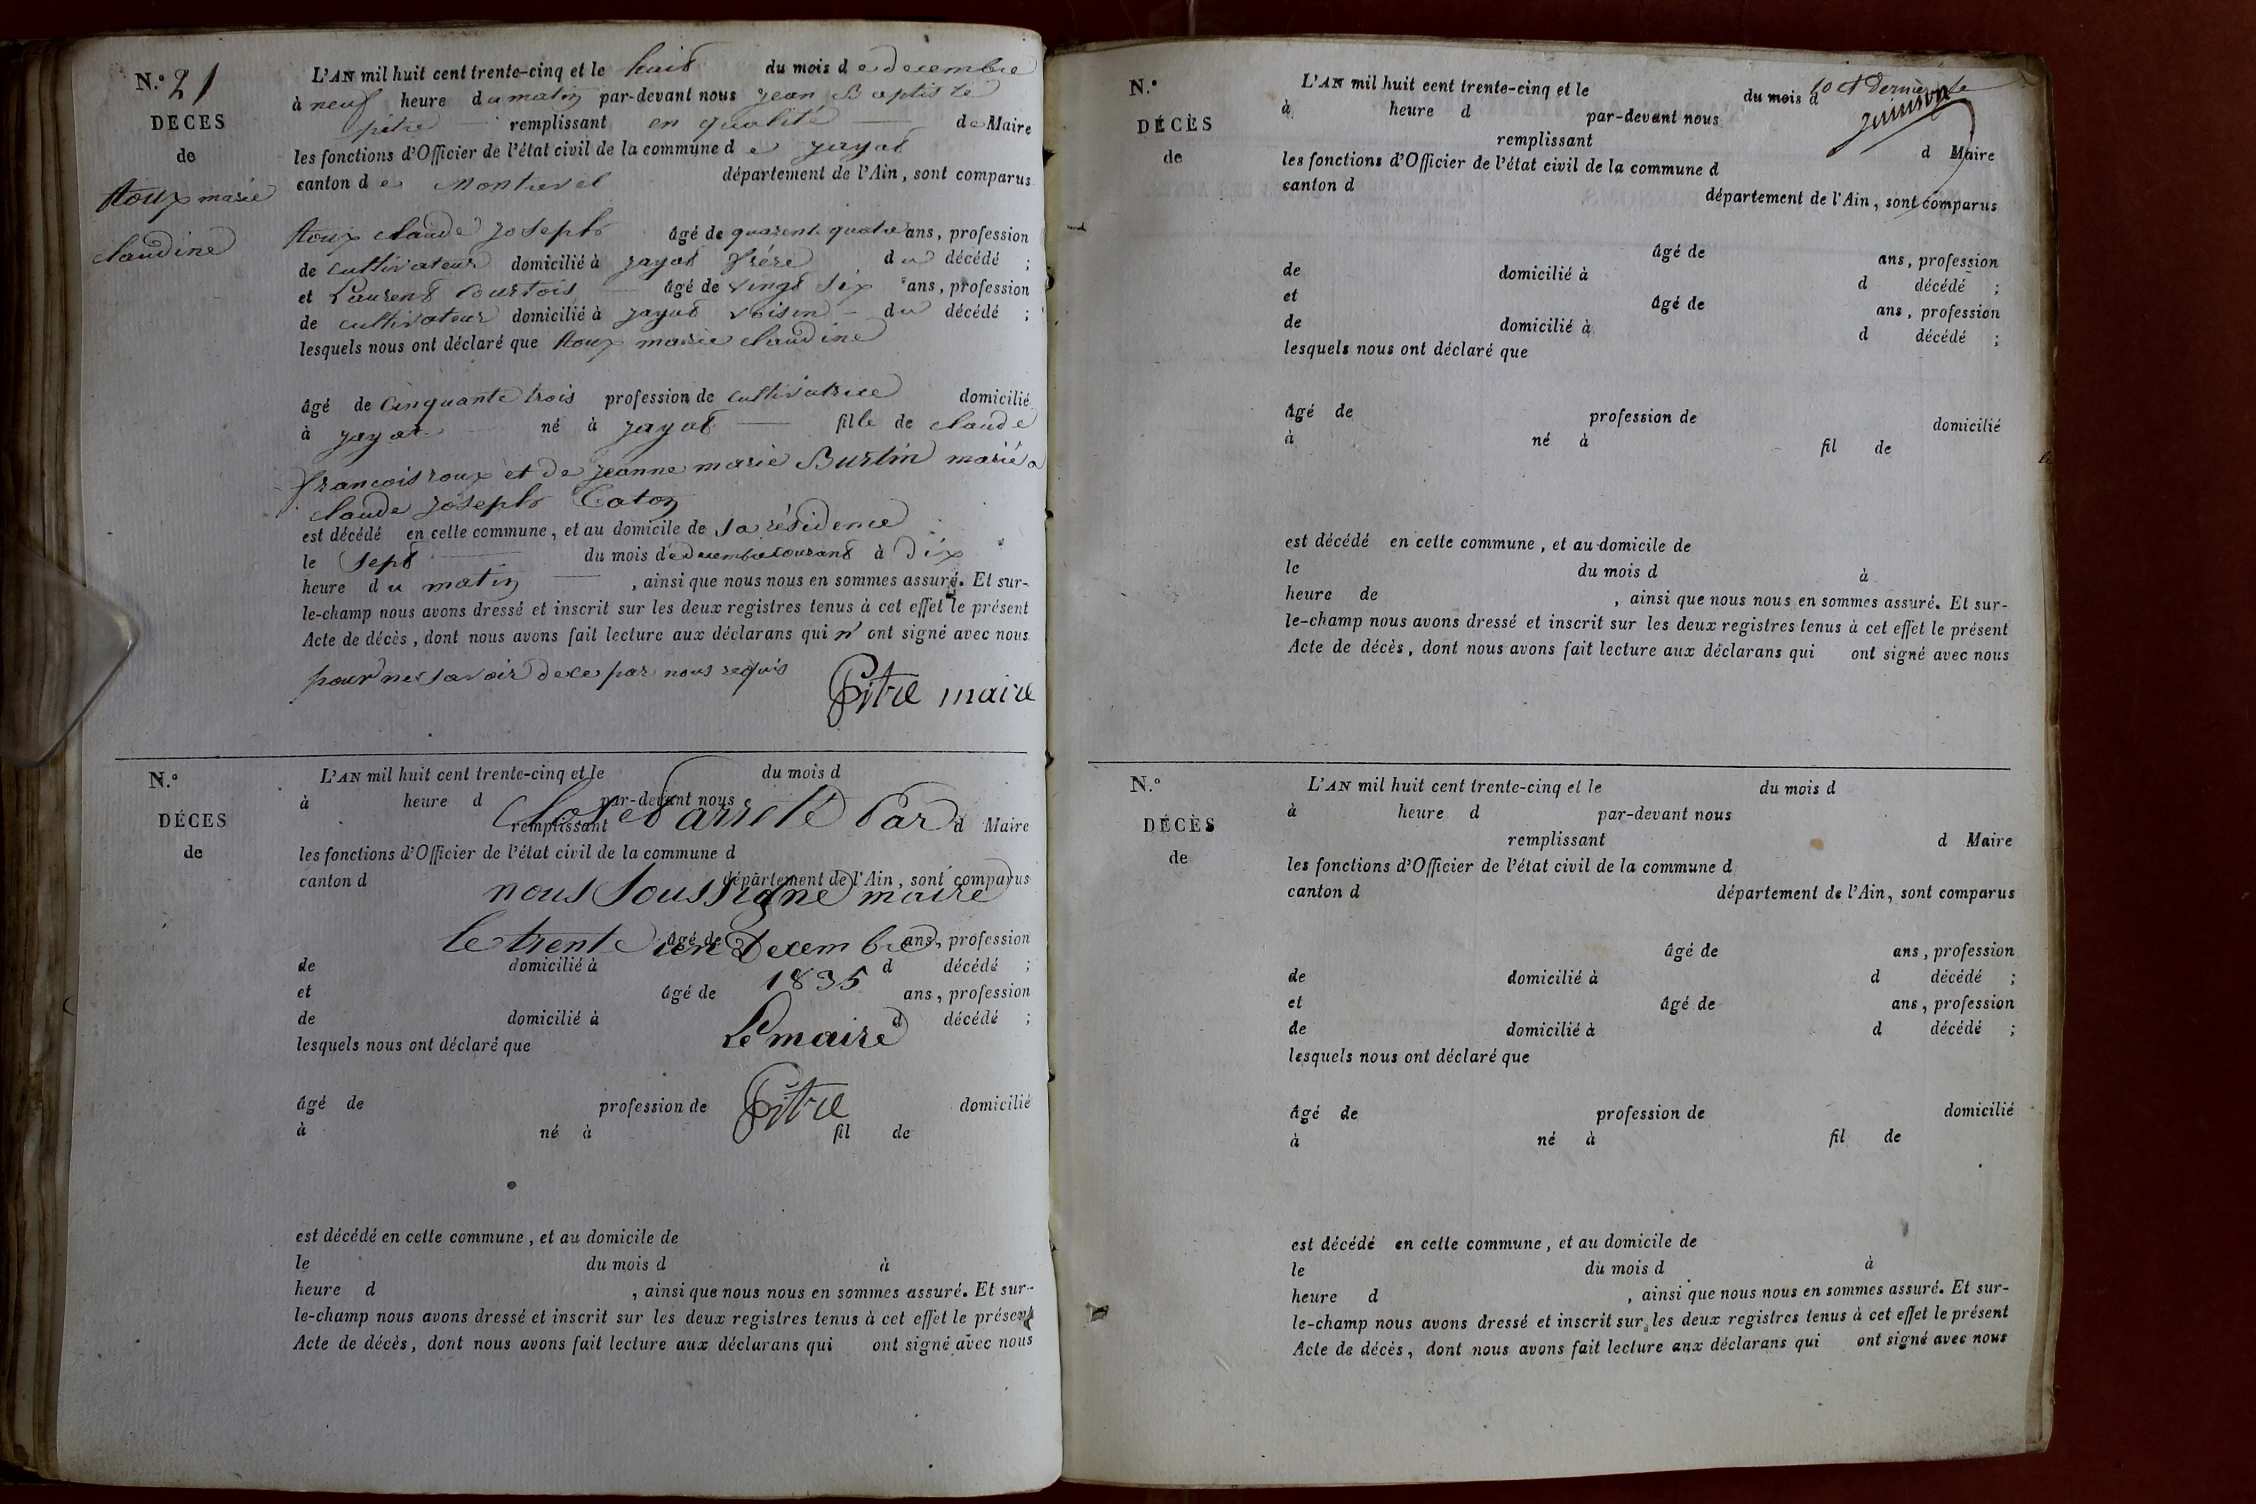 N.º 21
DÉCES
de
Roux marie
claudine
L'AN mil huit cent trente-cinq et le huit du mois de decembre
à neuf heure du matin par-devant nous jean Baptiste
pitre remplissant en qualité de Maire
les fonctions d'Officier de l'état civil de la commune de jayat
canton de Montrevel département de l'Ain, sont comparus
Roux claude joseph âgé de quarente quatre ans, profession
de cultivateur domicilié à jayat frére du décédé ;
et Laurent Courtois âgé de vingt six ans, profession
de cultivateur domicilié à jayat voisin du décédé ;
lesquels nous ont déclaré que Roux marie claudine
âgé de cinquante trois profession de cultivatrice domicilié
à jayat né à jayat fille de claude
francois roux et de jeanne marie Burtin marié a
claude joseph Caton
est décédé en cette commune, et au domicile de sa résidence
le sept du mois de decembre courant à dix
heure du matin, ainsi que nous nous en sommes assuré. Et sur-
le-champ nous avons dressé et inscrit sur les deux registres tenus à cet effet le présent
Acte de décès, dont nous avons fait lecture aux déclarans qui n' ont signé avec nous
pour ne savoir de ce par nous requis
Pitre maire
N.º
DÉCES
de
L'AN mil huit cent trente-cinq et le du mois d
à heure d par-devant nous
Clos et arrêté Par
remplissant d Maire
les fonctions d'Officier de l'état civil de la commune d
canton d département de l'Ain, sont comparus
nous soussigné maire
le trente un Decembre
âgé de ans, profession
de domicilié à d décédé ;
1835
et âgé de ans, profession
de domicilié à d décédé ;
Le maire
lesquels nous ont déclaré que
Pitre
âgé de profession de domicilié
à né à fil de
est décédé en cette commune, et au domicile de
le du mois d à
heure d , ainsi que nous nous en sommes assuré. Et sur-
le-champ nous avons dressé et inscrit sur les deux registres tenus à cet effet le présent
Acte de décès, dont nous avons fait lecture aux déclarans qui ont signé avec nous
10 et Dernière
N.º
DÉCÈS
de
L'AN mil huit cent trente-cinq et le du mois d
à heure d par-devant nous
remplissant d Maire
les fonctions d'Officier de l'état civil de la commune d
canton d département de l'Ain, sont comparus
âgé de ans, profession
de domicilié à d décédé ;
et âgé de ans, profession
de domicilié à d décédé ;
lesquels nous ont déclaré que
âgé de profession de domicilié
à né à fil de
est décédé en cette commune, et au domicile de
le du mois d à
heure de , ainsi que nous nous en sommes assuré. Et sur-
le-champ nous avons dressé et inscrit sur les deux registres tenus à cet effet le présent
Acte de décès, dont nous avons fait lecture aux déclarans qui ont signé avec nous
N.º
DÉCÈS
de
L'AN mil huit cent trente-cinq et le du mois d
à heure d par-devant nous
remplissant d Maire
les fonctions d'Officier de l'état civil de la commune d
canton d département de l'Ain, sont comparus
âgé de ans, profession
de domicilié à d décédé ;
et âgé de ans, profession
de domicilié à d décédé ;
lesquels nous ont déclaré que
âgé de profession de domicilié
à né à fil de
est décédé en cette commune, et au domicile de
le du mois d à
heure d , ainsi que nous nous en sommes assuré. Et sur-
le-champ nous avons dressé et inscrit sur les deux registres tenus à cet effet le présent
Acte de décès, dont nous avons fait lecture aux déclarans qui ont signé avec nous